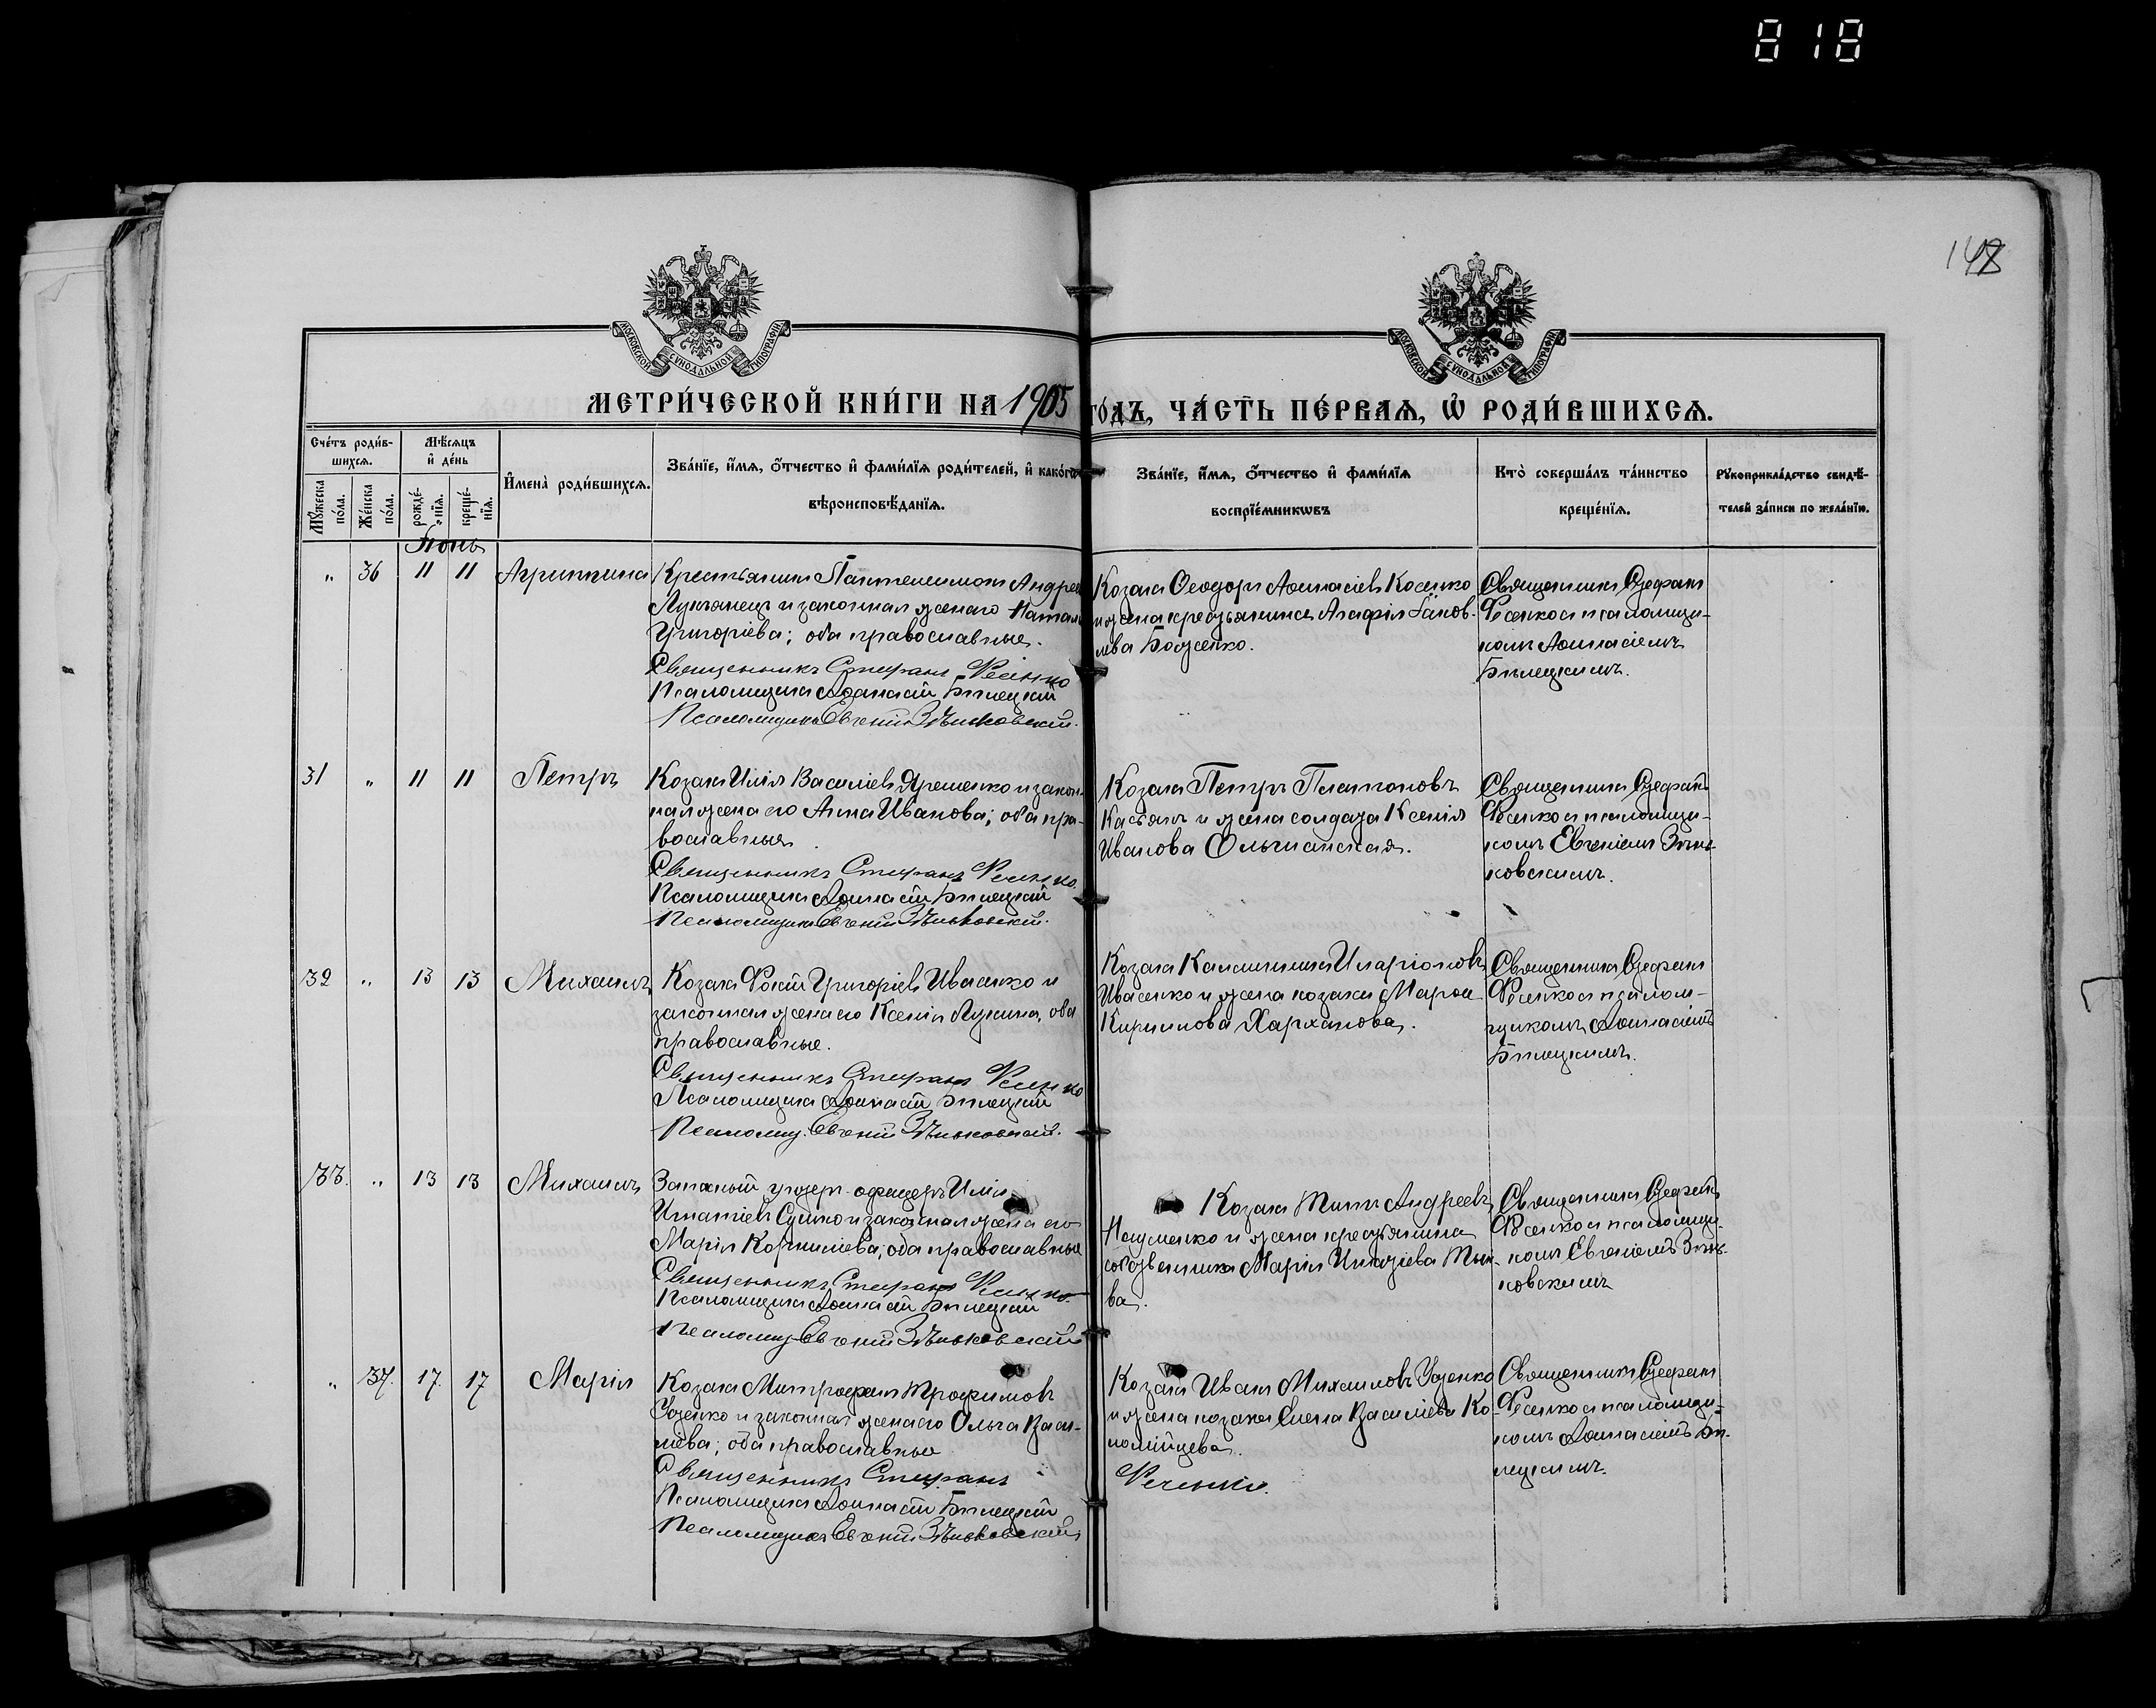 818
148
МОСКОВСКОЙ СѴНОДАЛЬНОЙ ТИПОГРАФІИ
МОСКОВСКОЙ СѴНОДАЛЬНОЙ ТИПОГРАФІИ
МЕТРИ́ЧЕСКОЙ КНИ́ГИ НА 1905 ГО́ДЪ, ЧА́СТЬ ПЕ́РВАѦ, Ѡ҆ РОДИ́ВШИХСѦ.
Сче́тъ роди́в-
шихсѧ.
Мѣ́сѧцъ
и҆ де́нь
И҆мена̀ роди́вшихсѧ.
Зва́нїе, и҆́мѧ, о҆́тчество и҆ фами́лїѧ роди́телей, и҆ како́гѡ
вѣроисповѣ́данїѧ.
Зва́нїе, и҆́мѧ, о҆́тчество и҆ фами́лїѧ
воспрїе́мникѡвъ
Кто̀ соверша́лъ та́инство
креще́нїѧ.
Рꙋкоприкла́дство свидѣ́-
телей за́писи по жела́нїю.
Мꙋ́жеска
по́ла.
Же́нска
по́ла.
рожде́-
нїѧ.
креще́-
нїѧ.
Іюнь
„ 36 11 11 Агриппина
Крестьянинъ Пантелеимонъ Андрее
Лукьянецъ и законная жена его Натал
Григоріева; оба православные.
Священникъ Стефанъ Фесенко
Псаломщикъ Аѳанасій Бѣлецкій
Псаломщикъ Евгеній Зѣньковскій.
Козакъ Ѳеодоръ Аѳанасіевъ Косенко
и жена крестьянина Агафія Іаков-
лева Боженко.
Священникъ Стефанъ
Фесенко и псаломщи-
комъ Аѳанасіемъ
Бѣлецкимъ.
31 „ 11 11 Петръ
Козакъ Илія Васильевъ Яременко и закон-
ная жена его Анна Иванова; оба пра-
вославные.
Священникъ Стефанъ Фесенко.
Псаломщикъ Аѳанасій Бѣлецкій
Псаломщикъ Евгеній Зѣньковскій.
Козакъ Петръ Платоновъ
Касьянъ и жена солдата Ксенія
Иванова Ольшанская.
Священникъ Стефанъ
Фесенко и псаломщи-
комъ Евгеніемъ Зѣнь-
ковскимъ.
32 „ 13 13 Михаилъ
Козакъ Фокій Григоріевъ Ивасенко и
законная жена его Ксенія Лукина, оба
православные.
Священникъ Стефанъ Фесенко
Псаломщикъ Аѳанасій Бѣлецкій
Псаломщ. Евгеній Зѣньковскій.
Козакъ Калинникъ Иларіоновъ
Ивасенко и жена козака Марѳа
Кириллова Харханова.
Священникъ Стефанъ
Фесенко и псалом-
щикомъ Аѳанасіемъ
Бѣлецкимъ.
33. „ 13 13 Михаилъ
Запасный унтеръ-офицеръ Илія
Игнатіевъ Сушко и законная жена его
Марія Корниліева; оба православные
Священникъ Стефанъ Фесенко.
Псаломщикъ Аѳанасій Бѣлецкій
Псаломщ. Евгеній Зѣньковскій
Козакъ Титъ Андреевъ
Науменко и жена крестьянина
собственника Марія Игнатіева
ва.
Священникъ Стефанъ
Фесенко и псаломщи-
комъ Евгеніемъ Зѣнь-
ковскимъ
„ 37. 17. 17 Марія
Козакъ Митрофанъ Трофимовъ
и законная жена его Ольга Васи-
ліева; оба православные
Священникъ Стефанъ
Псаломщикъ Аѳанасій Бѣлецкій
Псаломщикъ Евгеній Зѣньковскій
Козакъ Иванъ Михаиловъ Усенко
и жена козака Елена Василіева Ко-
ломійцева.
Фесенко.
Священникъ Стефанъ
Фесенко и псаломщи-
комъ Аѳанасіемъ Бѣ-
лецкимъ.